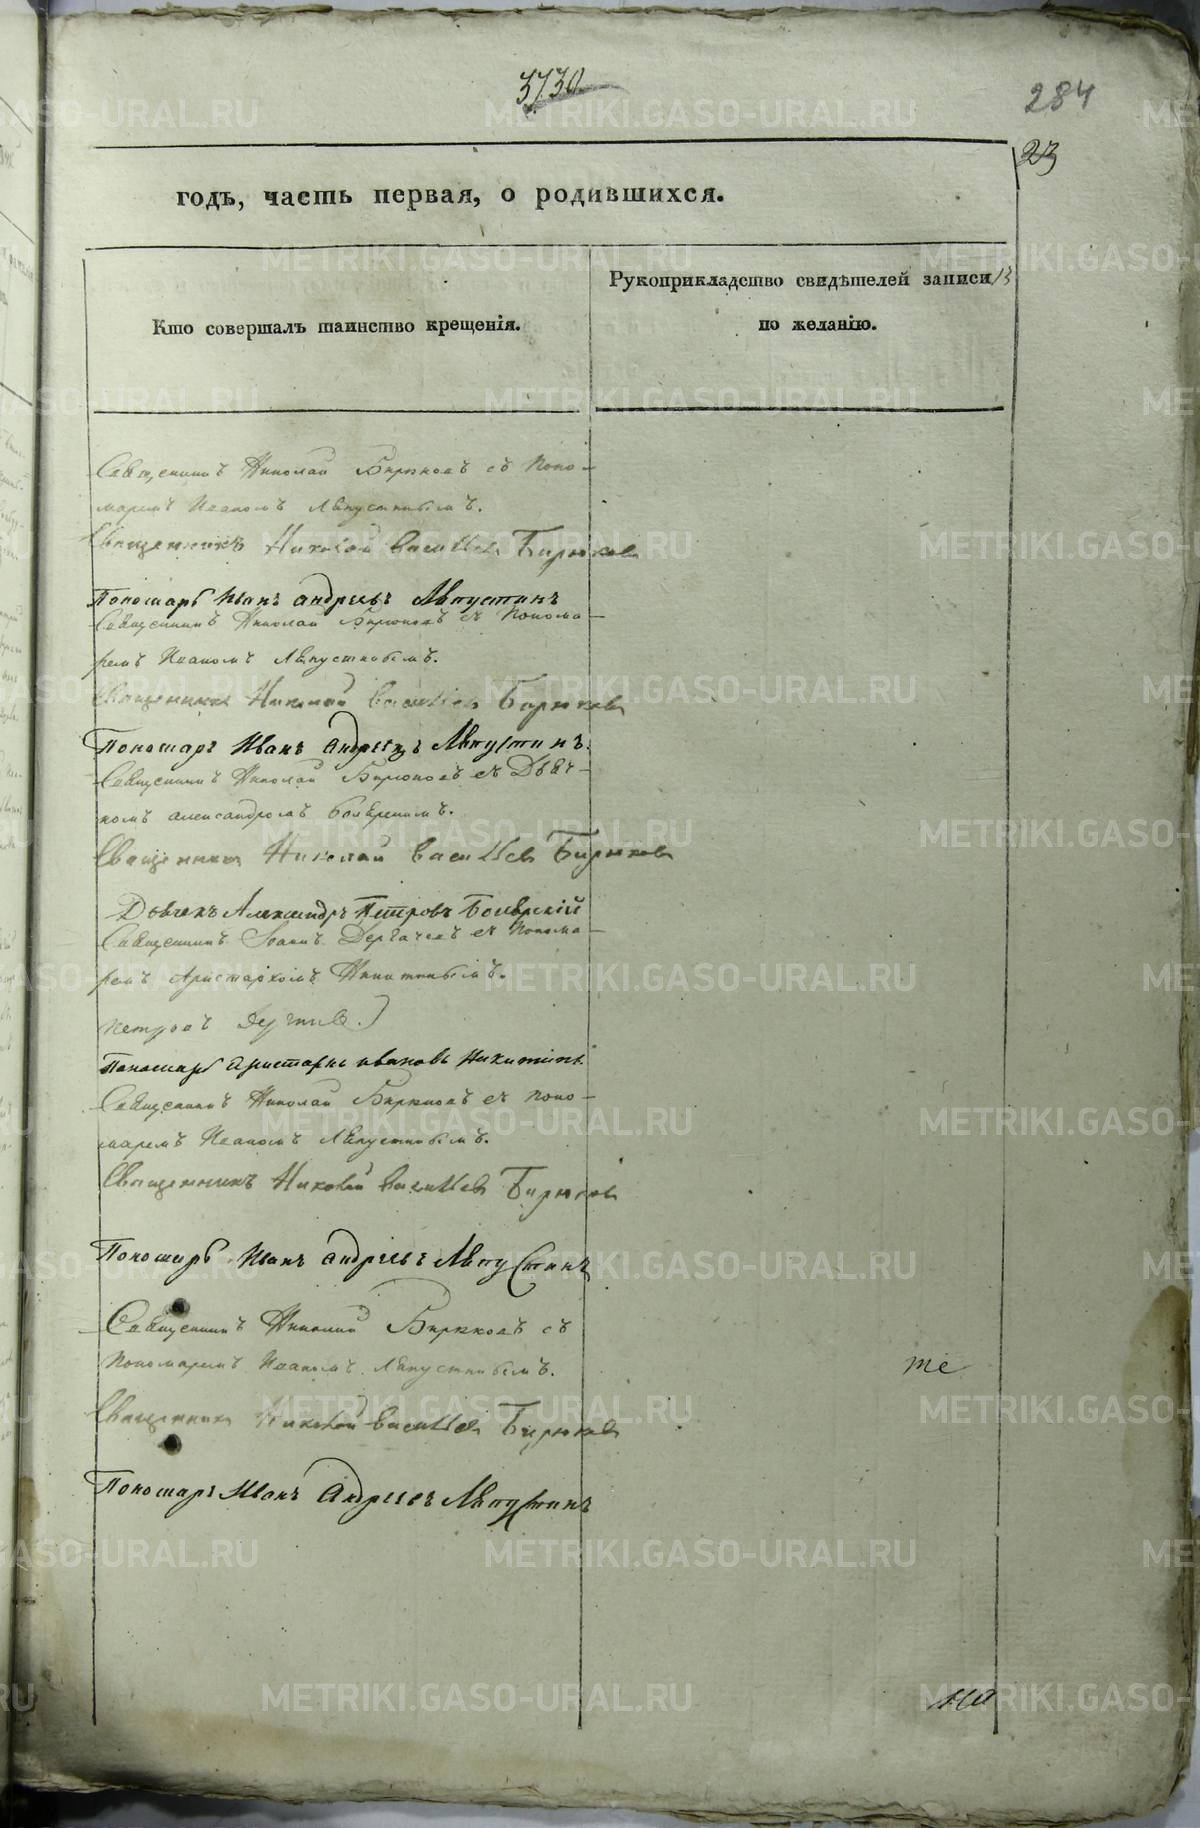 3730.
284
23
годъ, часть первая, о родившихся.
Кто совершалъ таинство крещенія.
Рукоприкладство свидѣтелей записи
по желанію.
13
Священникъ Николай Бирюковъ съ Поно-
маремъ Иваномъ Лѣпустинымъ.
Священникъ Николай Васильев Бирюков
Пономарь Иванъ Андреевъ Лѣпустинъ
Священникъ Николай Бирюковъ съ Понома-
ремъ Иваномъ Лѣпустинымъ.
Священникъ Николай Васильев Бирюков
Пономарь Иванъ Андреевъ Лѣпустинъ.
Священникъ Николай Бирюковъ съ Дьяч-
комъ Александромъ
Священникъ Николай Васильев Бирюков
Дьячекъ Александръ Петровъ
Священникъ Іоаннъ Дергачевъ съ Понома-
ремъ Аристархомъ Никитинымъ.
Петровъ
Пономарь Аристархъ Ивановъ Никитинъ.
Священникъ Николай Бирюковъ съ Поно-
маремъ Иваномъ Лѣпустинымъ.
Священникъ Николай Васильев Бирюков
Пономарь Иванъ Андреевъ Лѣпустинъ
Священникъ Николай Бирюковъ съ
Пономаремъ Иваномъ Лѣпустинымъ.
те
Священникъ Николай Васильев Бирюков
Пономарь Иванъ Андреевъ Лѣпустинъ
METRIKI.GASO-URAL.RU